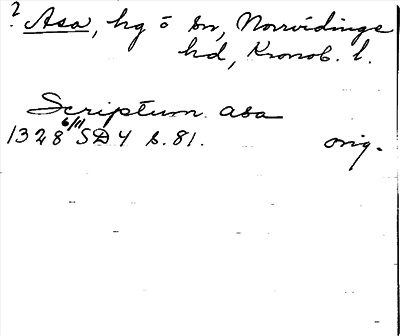 ? Asa, hg o sn, Norrvidinge
hd, Kronob. l.
Scriptum asa
1328 6/11 SD 4 s. 81. orig.